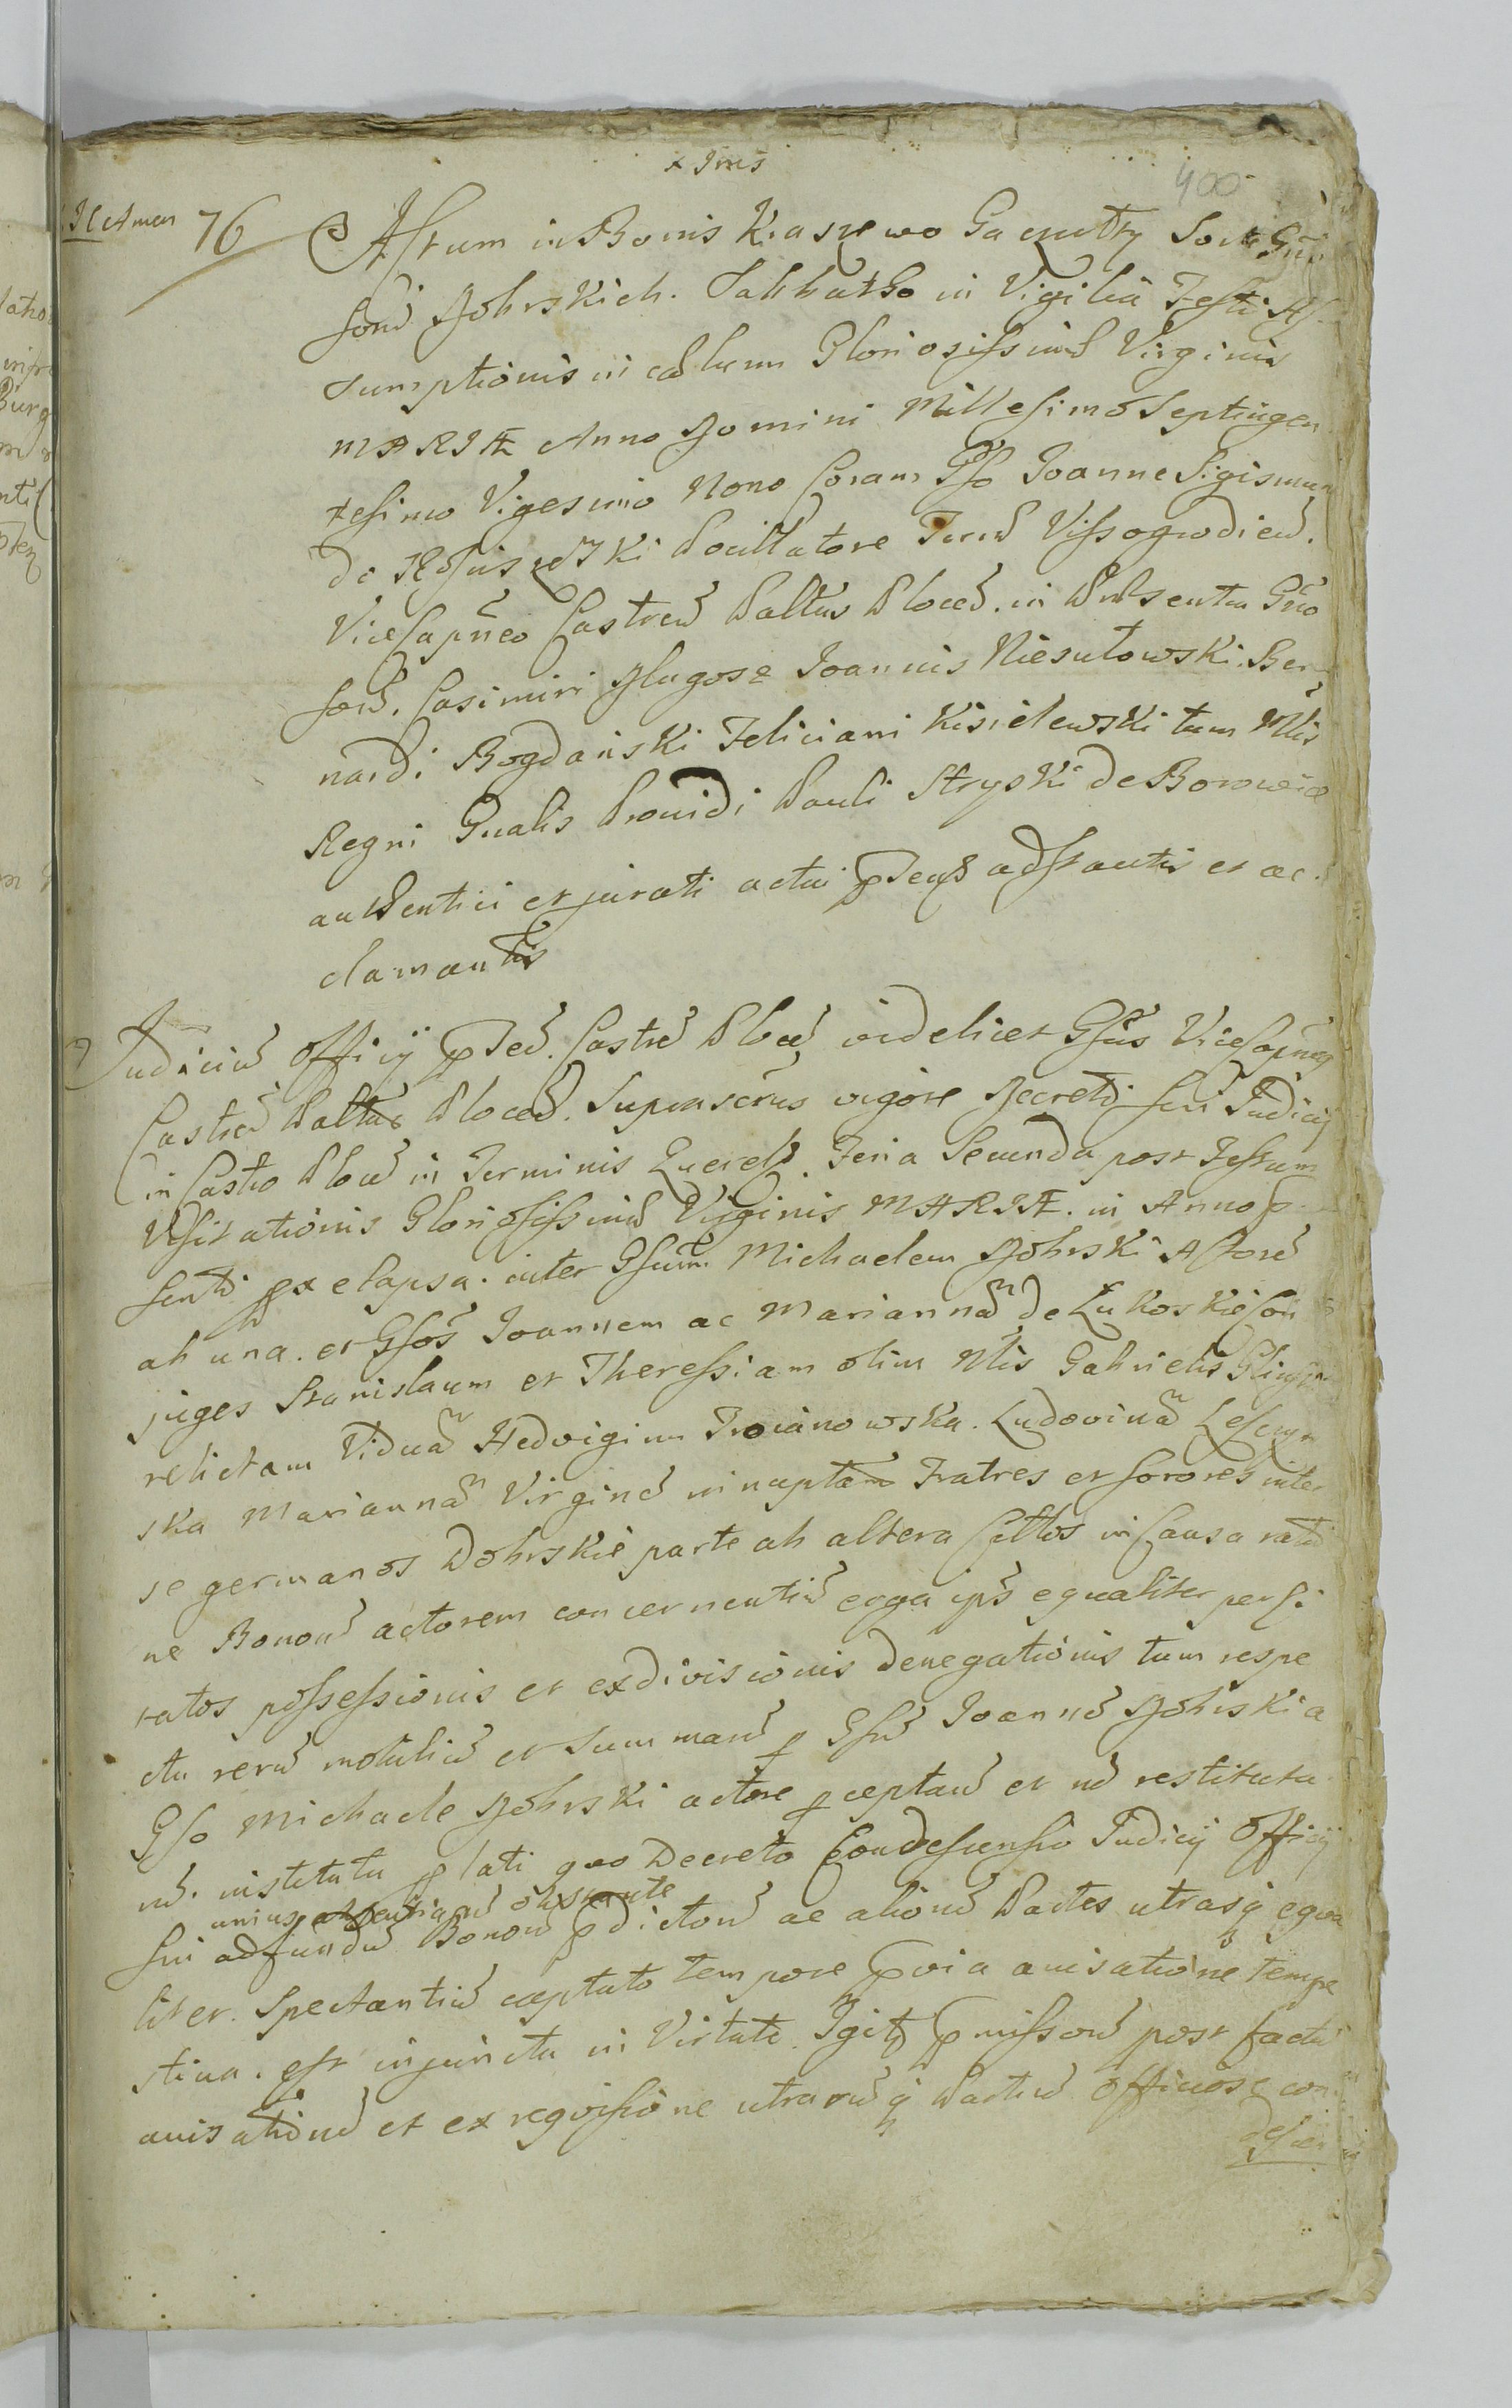 400
76 Actum in Bonis Kraszewo Gaczułty Sorte Gnr
sorum Dobrskich. Sabbatho in Vigilia Festi As
sumptionis in cælum Gloriosissimæ Virginis
MARIÆ Anno Domini Millesimo Septingen
tesimo Vigesimo Nono Coram Gso Joanne Sigismun
do Pocillatore Terræ Vissogrodien.
ViceCapneo Castren Paltus Plocen. in Præsentia Gno
sorum. Casimiri Dlugosz Joannis Niesułowski. Ber
nardi Bogdański Feliciani Kisielewski tum Mlis
Regni Gnalis Providi Pauli Stryski de Borowice
authentici et jurati actui pntis adstantis et ac
clamantis
Judicium Officij pnted. Castren Plocen videlicet Gsus ViceCapneus
Castren Paltus Plocen. Suprascrus vigore Decreti sui Judicij
in Castro Plocen in Terminis Querel. Feria Secunda post Festum
Visitationis Gloriosissimæ Virginis MARIÆ. in Anno p
senti pxe elapsa. inter Gsum Michaelem Dobrski Actorem
ab una. et Gsos Joannem ac Mariannam de Łukoskie Con
juges Stanislaum et Theressiam olim Mlis Gabrielis Glinsk
relictam Viduam Hedvigim Troianowska. Ludovinam Lesczyn
ska Mariannam Virginem innuptam Fratres et sorores inter
se germanos Dobrskie parte ab altera Cittos in Causa ratio
ne Bonorum actorem concernentium erga ipsos equaliter persi
ratos possessionis et exdivisionis denegationis tum respe
ctu rerum mobilium et Summarum p Gsum Joannem Dobrski a
Gso Michaele Dobrski actore pceptarum et non restituta
rum. instituta plati quo Decreto Condescensio Judicij Officij
unius absentia non obstante
sui ad fundum Bonorum pdictorum ac aliorum Partes utrasq equa
liter. Spectantium captato tempore pvia avisatione tempe
stiua. est injuncta in Virtute. Igitur pmissorum post factam
avisationem et ex requisitione utrarumq Partium officiose con
descen